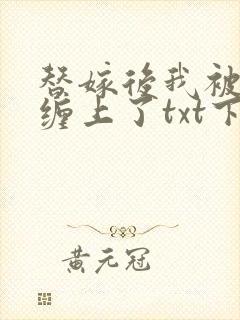 替嫁后我被
缠上了txt下
黄元冠